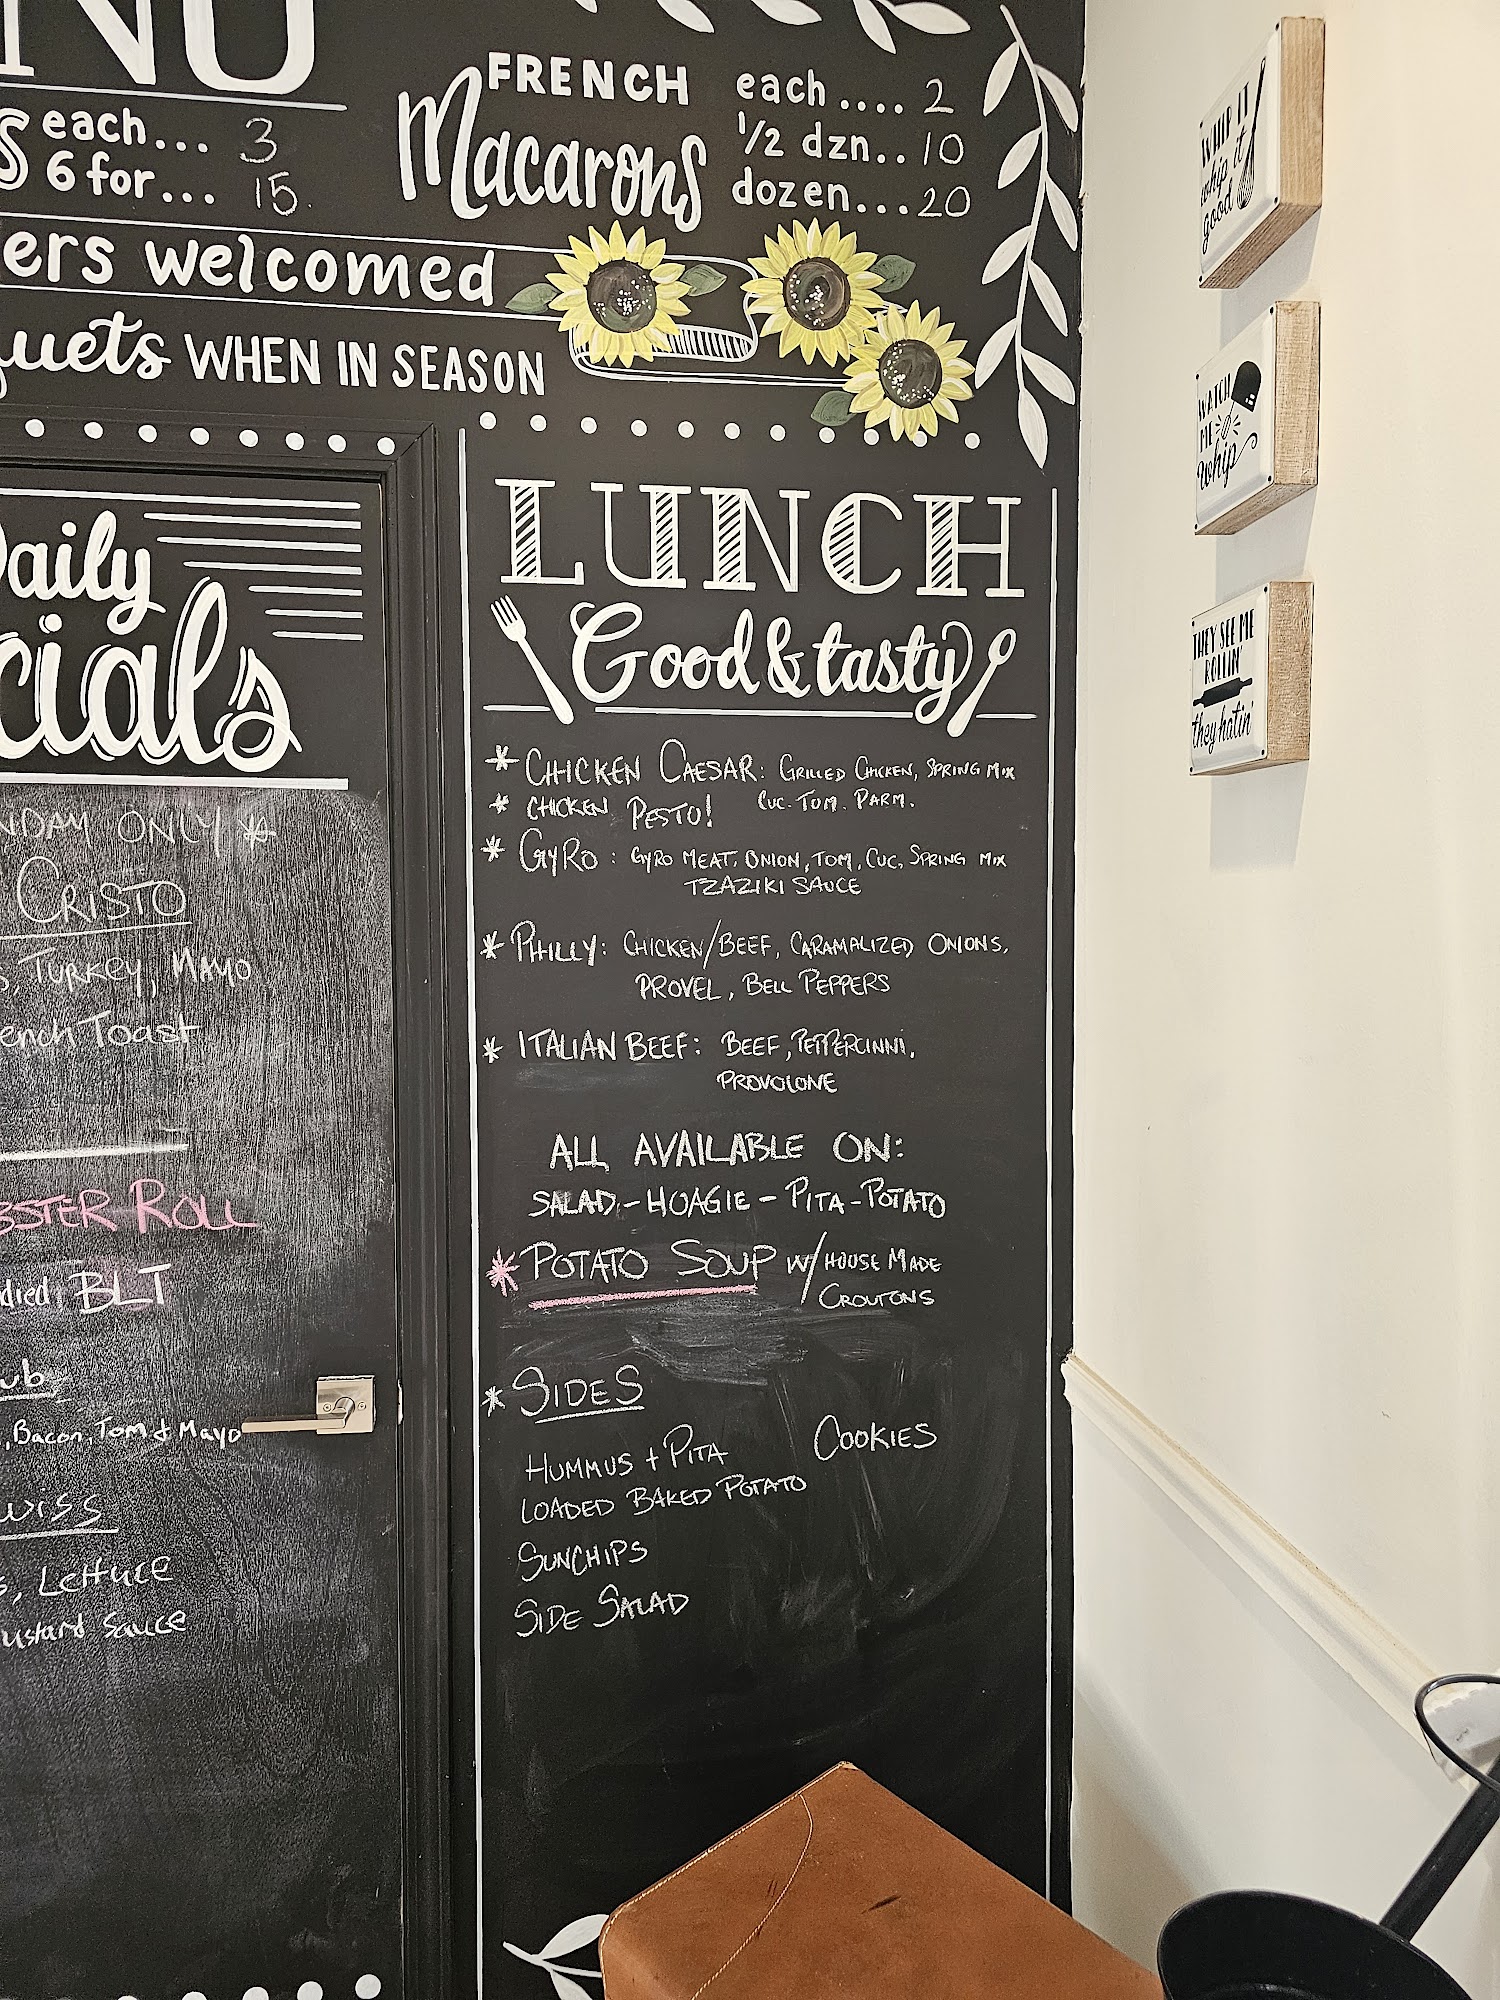 NU
each... 3
6 for... 15
FRENCH
Macarons
each .... 2
1/2 dzn.. 10
dozen... 20
ers welcomed
uets WHEN IN SEASON
Daily
cials
NDAY ONLY *
CRISTO
, TURKEY, MAYO
ench Toast
BSTER ROLL
died BLT
ub
, Bacon, Tom & Mayo
wiss
s, Lettuce
ustard Sauce
LUNCH
Good & tasty
* CHICKEN CAESAR: GRILLED CHICKEN, SPRING MIX
CUC. TOM. PARM.
* CHICKEN PESTO!
* GYRO: GYRO MEAT, ONION, TOM, CUC, SPRING MIX
TZAZIKI SAUCE
* PHILLY: CHICKEN/BEEF, CARAMALIZED ONIONS,
PROVEL, BELL PEPPERS
* ITALIAN BEEF: BEEF, PEPPERCINNI,
PROVOLONE
ALL AVAILABLE ON:
SALAD - HOAGIE - PITA - POTATO
* POTATO SOUP W/ HOUSE MADE
CROUTONS
* SIDES
HUMMUS + PITA
COOKIES
LOADED BAKED POTATO
SUNCHIPS
SIDE SALAD
WHIP IT
whip it
good
WATCH
ME
whip
THEY SEE ME
ROLLIN'
they hatin'